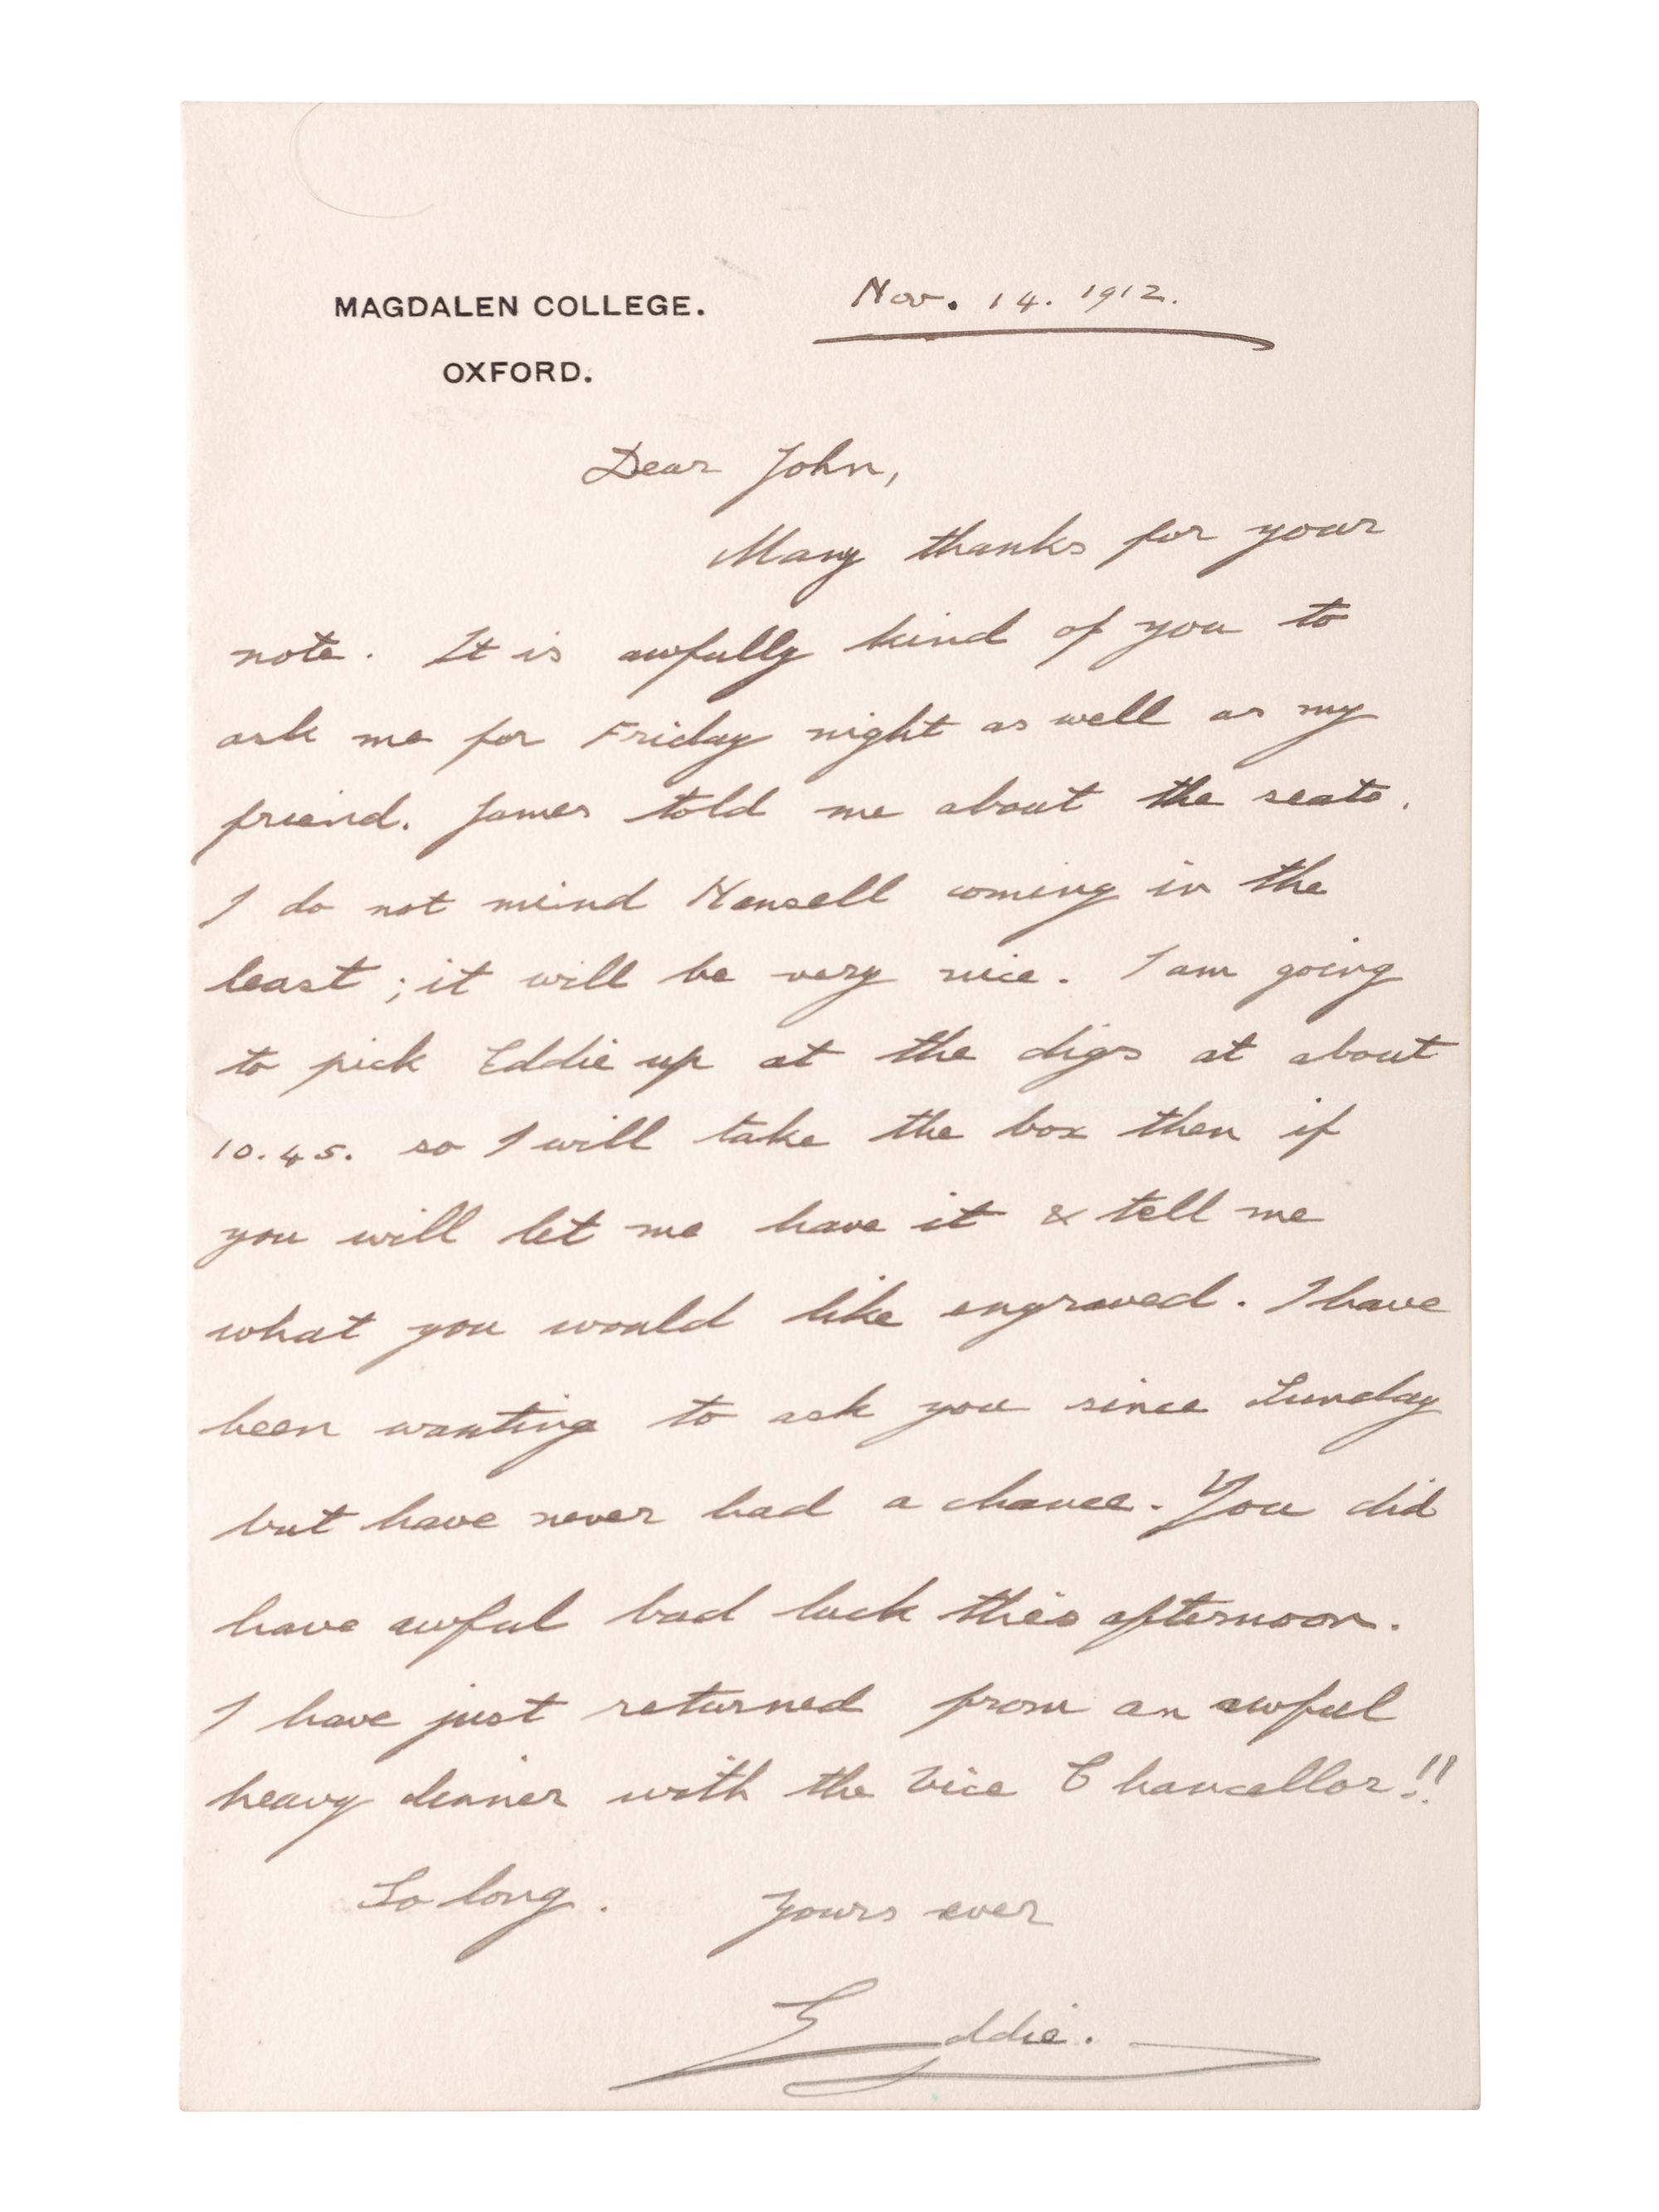 MAGDALEN COLLEGE.
OXFORD.
Nov. 14. 1912.
Dear John,
Many thanks for your
note. It is awfully kind of you to
ask me for Friday night as well as my
friend. James told me about the seats.
I do not mind Hansell coming in the
least; it will be very nice. I am going
to pick Eddie up at the digs at about
10.45. so I will take the box then if
you will let me have it & tell me
what you would like engraved. I have
been wanting to ask you since Sunday
but have never had a chance. You did
have awful bad luck this afternoon.
I have just returned from an awful
heavy dinner with the Vice Chancellor!!
So long. Yours ever
Eddie.